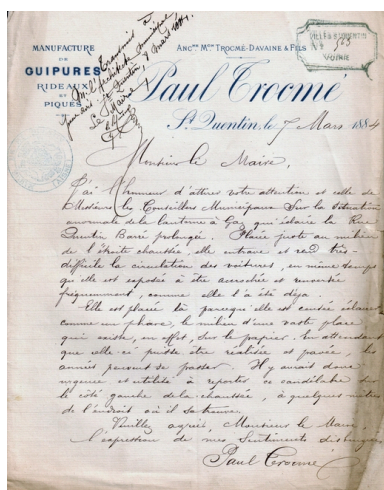 MANUFACTURE
DE
GUIPURES
RIDEAUX
ET
PIQUÉS
Transmis à
M. l'Architecte
pour avis
St Quentin, 8 Mars 1884
Le Maire
Ancne Mon TROCMÉ-DAVAINE & FILS
VILLE DE St QUENTIN
VOIRIE
Paul Trocmé
St Quentin, le 7 Mars 1884
Monsieur le Maire,
J'ai l'honneur d'attirer votre attention et celle de
Messieurs les Conseillers Municipaux sur la situation
anormale de la lanterne à Gaz qui éclaire la Rue
Quentin Barré prolongée. Placée juste au milieu
de l'étroite chaussée, elle entrave et rend très-
difficile la circulation des voitures, en même temps
qu'elle est exposée à être accrochée et renversée
fréquemment, comme elle l'a été déja.
Elle est placée là parcequ'elle est censée éclairer
comme un phare, le milieu d'une vaste place
qui existe, en effet, sur le papier. En attendant
que celle-ci puisse être réalisée et pavée, les
années peuvent se passer. Il y aurait donc
urgence et utilité à reporter ce candélabre sur
le côté gauche de la chaussée, à quelques mètres
de l'endroit où il se trouve.
Veuillez agréer, Monsieur le Maire,
l'expression de mes Sentiments distingués
Paul Trocmé